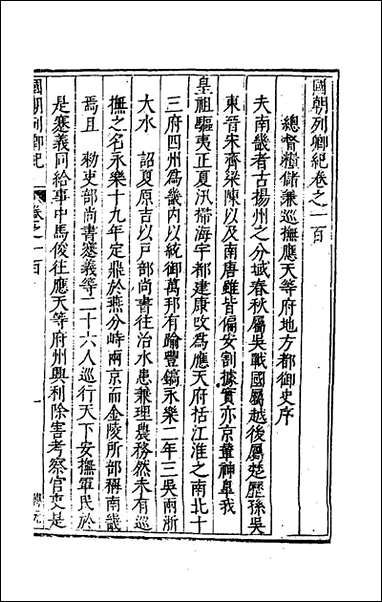 國朝列卿紀卷之一百
總督糧儲兼巡撫應天等府地方都御史序
夫南畿者古揚州之分域春秋屬吳戰國屬越後屬楚歷孫吳
東晉宋齊梁陳以及南唐雖皆偏安割據實亦京輦神皐我
皇祖驅夷正夏汛掃海宇都建康改為應天府括江淮之南北十
三府四州為畿内以統御萬邦有踰豐鎬永樂二年三吳兩浙
大水 詔夏原吉以戶部尚書往治水患兼理農務然未有巡
撫之名永樂十九年定鼎於燕分峙兩京而金陵所部稱南畿
焉且 勑吏部尚書蹇義等二十六人巡行天下安撫軍民於
是蹇義同給事中馬俊往應天等府州興利除害考察官吏是
國朝列卿紀 卷之一百 一